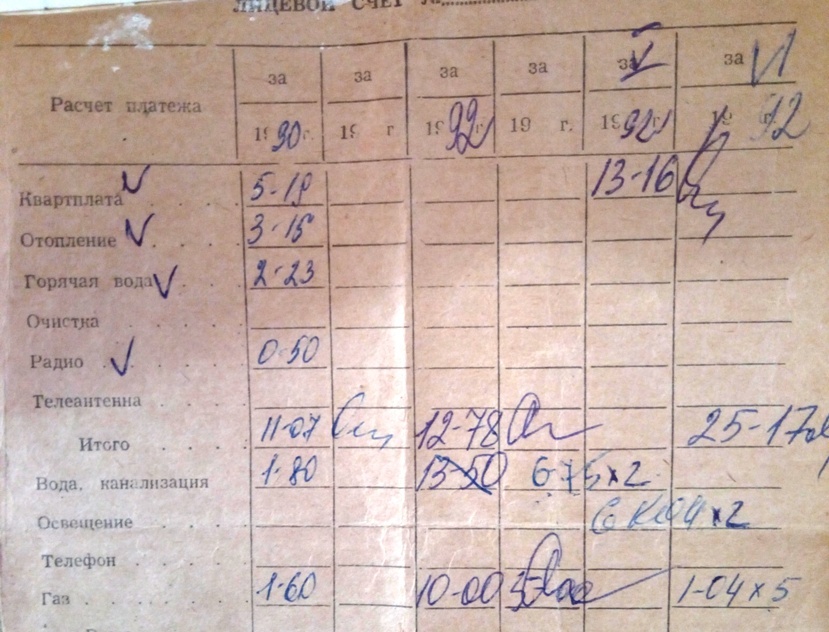 ЛИЦЕВОЙ СЧЕТ №
Расчет платежа за за за за за V за VI
1990г. 19 г 1992г 19 г. 1992г 19 г. 92
Квартплата V 5-19 13-16
Отопление V 3-15
Горячая вода V 2-23
Очистка
Радио V 0-50
Телеантенна
Итого 11-07 12-78 25-17
Вода, канализация 1-80 13-50 6-75x2
Освещение x2
Телефон
Газ 1-60 10-00 1-04x5